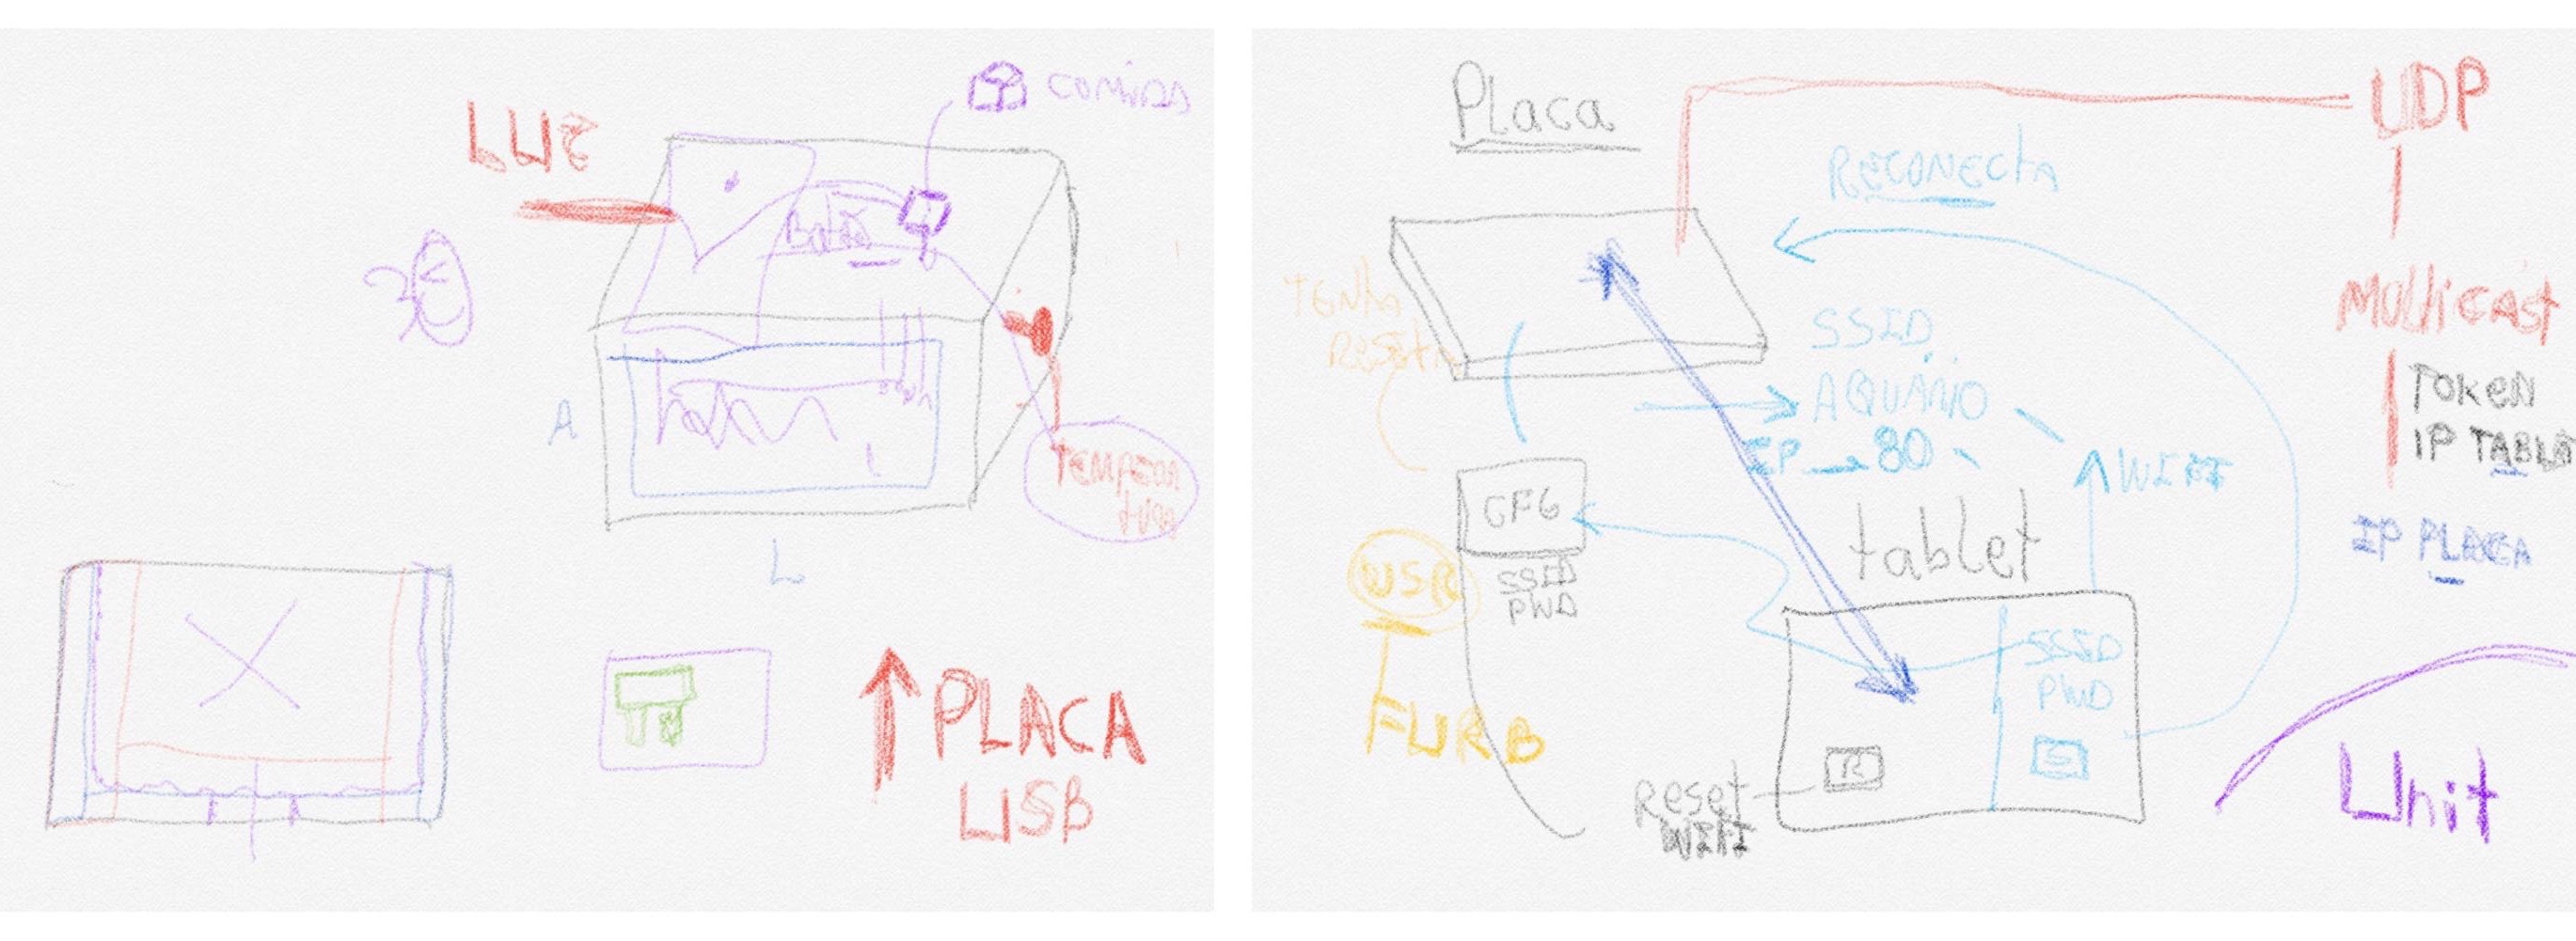 LUZ
COMIDA
A
TEMPERA
TURA
L
PLACA
USB
Placa
UDP
RECONECTA
TENTA
RESETA
SSID
AQUÁRIO
IP → 80
MULTICAST
TOKEN
IP TABLE
WIFI
CFG
SSID
PWD
IP PLACA
tablet
USR
FURB
SSID
PWD
R
S
Reset
WIFI
Unit